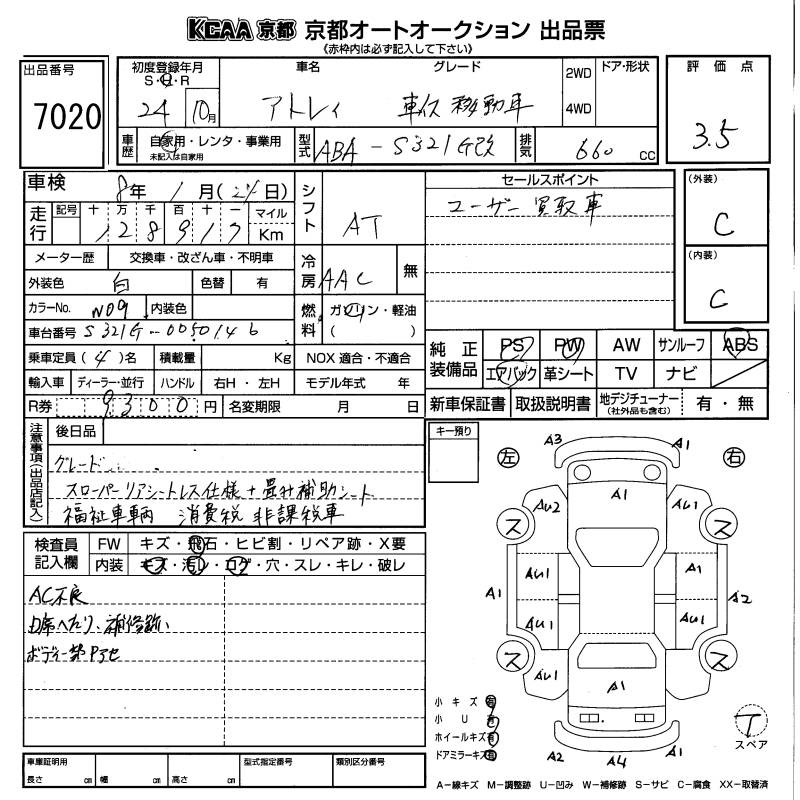 KCAA 京都 京都オートオークション 出品票
(赤枠内は必ず記入して下さい)
出品番号
7020
初度登録年月
S・H・R
24 10月
車名
アトレイ
グレード
車イス移動車
2WD
4WD
ドア・形状
評価点
3.5
車歴
自家用・レンタ・事業用
未記入は自家用
型式
ABA-S321G改
排気
660 cc
車検
8年 1月(24日)
走行
記号 十 万 千 百 十 一 マイル
1 2 8 9 1 7 Km
メーター歴 交換車・改ざん車・不明車
外装色 白 色替 有
カラーNo. W09 内装色
車台番号 S321G-0050146
乗車定員 (4)名 積載量 Kg NOX 適合・不適合
輸入車 ディーラー・並行 ハンドル 右H・左H モデル年式 年
R券 9300円 名変期限 月 日
シフト
AT
冷房
AAC 無
燃料
ガソリン・軽油
( )
セールスポイント
ユーザー買取車
(外装)
C
(内装)
C
純正装備品
PS PW AW サンルーフ ABS
エアバック 革シート TV ナビ
新車保証書 取扱説明書 地デジチューナー(社外品も含む) 有・無
注意事項(出品店記入)
後日品
グレード
スローパーリアシートレス仕様+畳み補助シート
福祉車輌 消費税非課税車
検査員記入欄
FW キズ・飛石・ヒビ割・リペア跡・X要
内装 キズ・汚レ・コゲ・穴・スレ・キレ・破レ
AC不良
キー預り
左
右
A3
A1
A1
Au2
Au1
ス
ス
Au1
Au1
A1
A2
Au1
A1
ス
ス
Au1
A1
小キズ 有
小U 有
ホイールキズ 有
ドアミラーキズ 有
A2
A4
A1
T
スペア
車庫証明用
長さ cm 幅 cm 高さ cm
型式指定番号
類別区分番号
A-線キズ M-調整跡 U-凹み W-補修跡 S-サビ C-腐食 XX-取替済